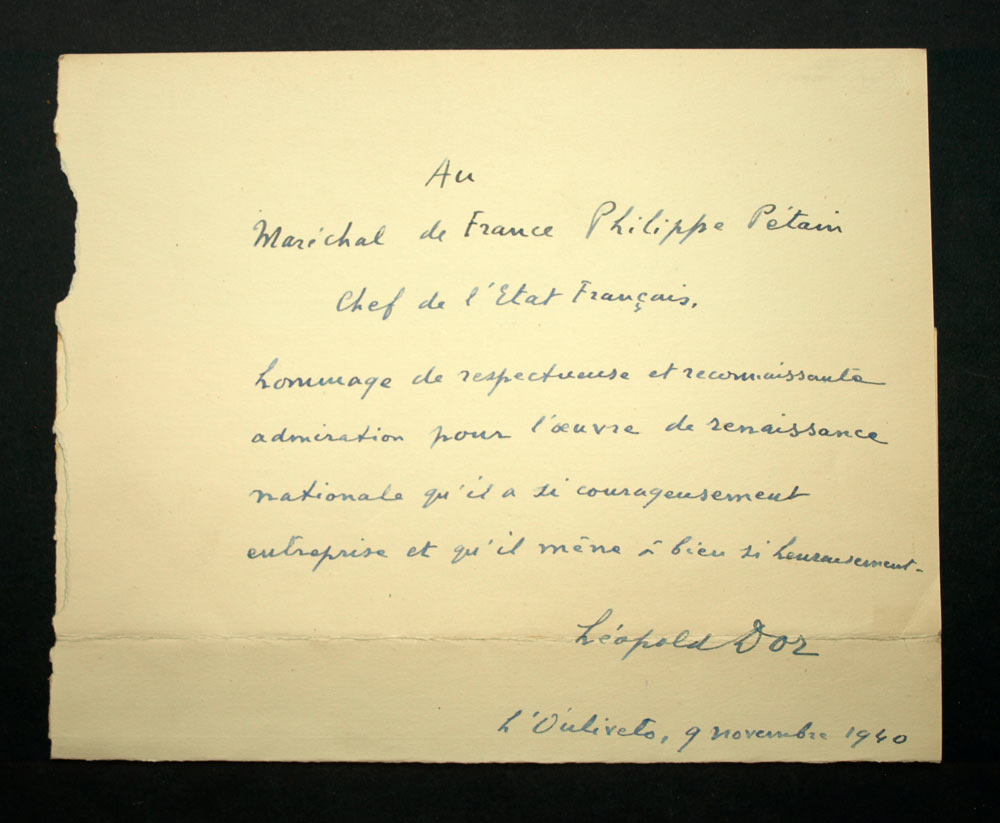 Au
Maréchal de France Philippe Pétain
Chef de l'Etat Français.
hommage de respectueuse et reconnaissante
admiration pour l'œuvre de renaissance
nationale qu'il a si courageusement
entreprise et qu'il mène à bien si heureusement.
Léopold Dor
L'Ouliveto, 9 novembre 1940